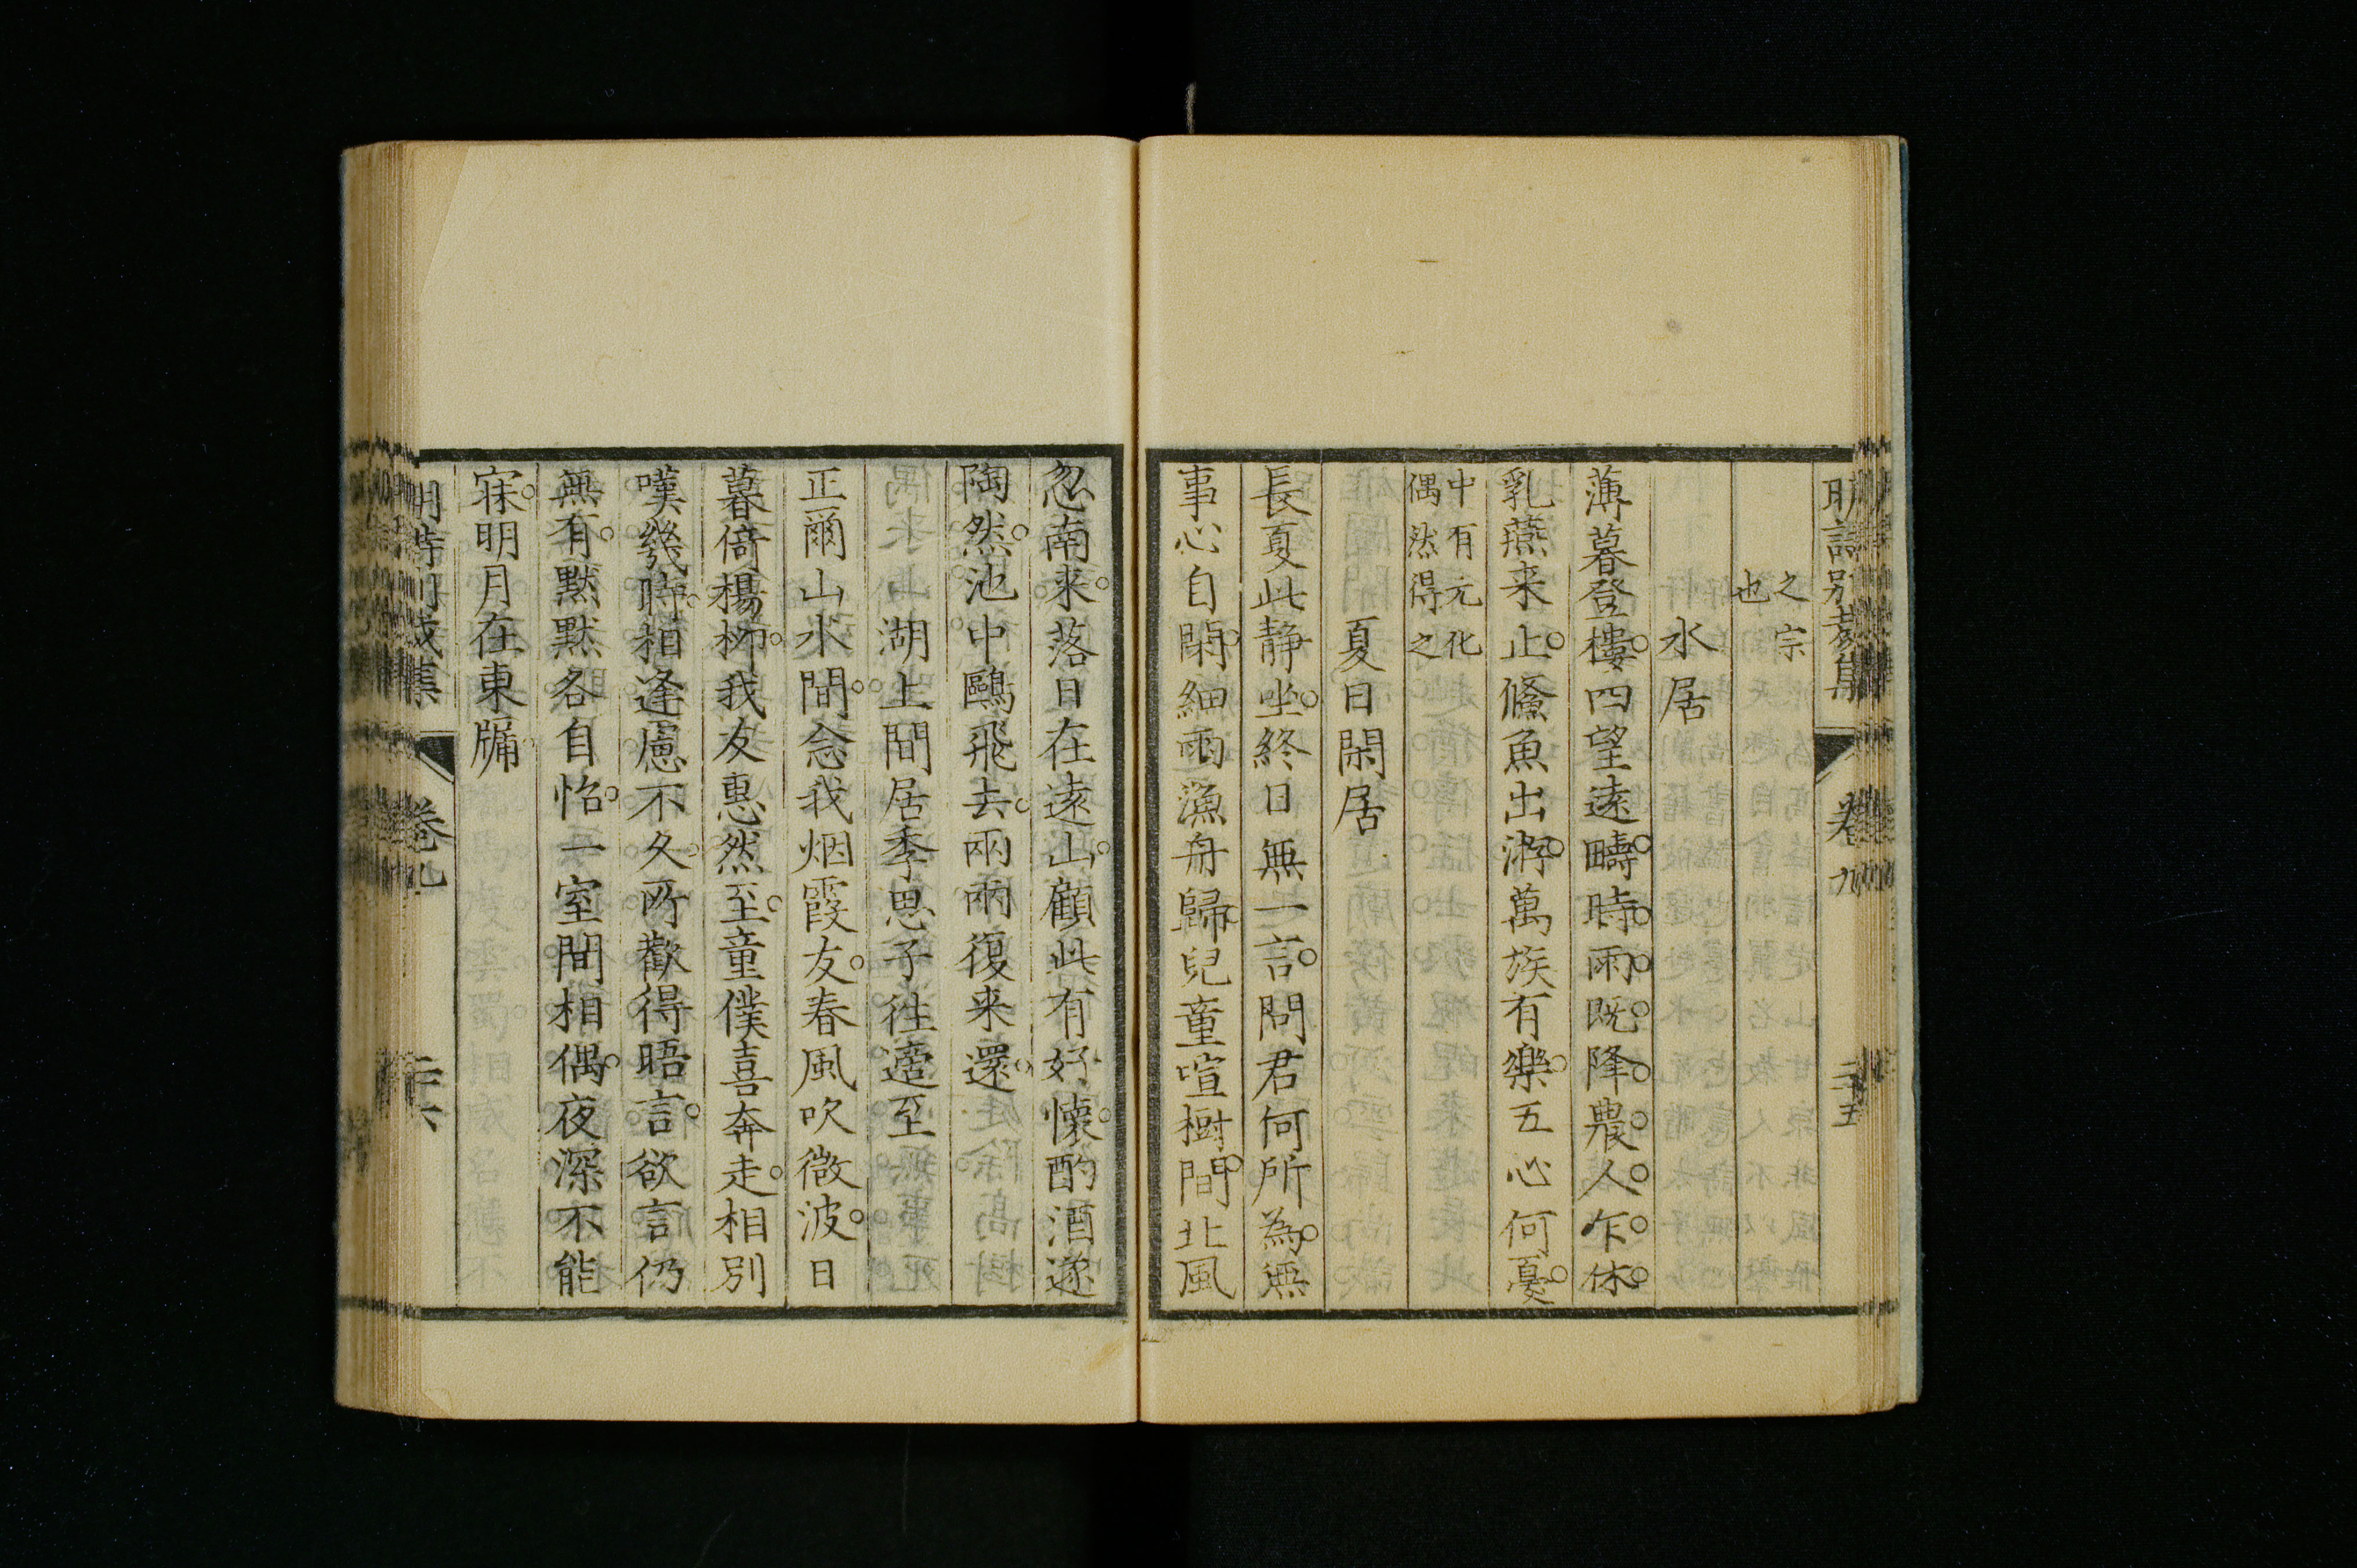 明詩別裁集 卷九 二十五
之宗
也
水居
薄暮登樓四望遠疇時雨既降農人乍休
乳燕来止鯈魚出游萬族有樂五心何憂
中有元化
偶然得之
夏日閑居
長夏此静坐終日無一言問君何所為無
事心自閑細雨漁舟歸兒童喧樹間北風
忽南来落日在遠山顧此有好懐酌酒遂
陶然池中鷗飛去兩兩復来還
湖上閒居季思子往適至
正爾山水間念我烟霞友春風吹微波日
暮倚楊柳我友惠然至童僕喜奔走相別
嘆幾時相逢慮不久所歡得晤言欲言仍
無有黙黙各自怡一室間相偶夜深不能
寐明月在東牖
明詩別裁集 卷九 二十六